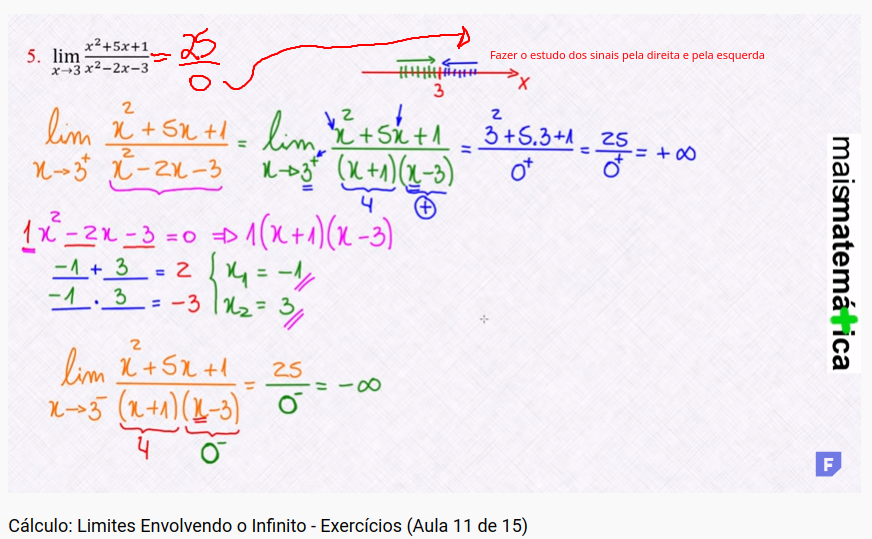 5. lim x→3 (x²+5x+1)/(x²-2x-3) = 25/0
Fazer o estudo dos sinais pela direita e pela esquerda
3 x
lim x→3⁺ (x²+5x+1)/(x²-2x-3) = lim x→3⁺ (x²+5x+1)/((x+1)(x-3)) = (3²+5.3+1)/0⁺ = 25/0⁺ = +∞
4 +
1x²-2x-3=0 ⇒ 1(x+1)(x-3)
-1 + 3 = 2 { x₁ = -1
-1 . 3 = -3 x₂ = 3
lim x→3⁻ (x²+5x+1)/((x+1)(x-3)) = 25/0⁻ = -∞
4 0⁻
maismatemática
F
Cálculo: Limites Envolvendo o Infinito - Exercícios (Aula 11 de 15)